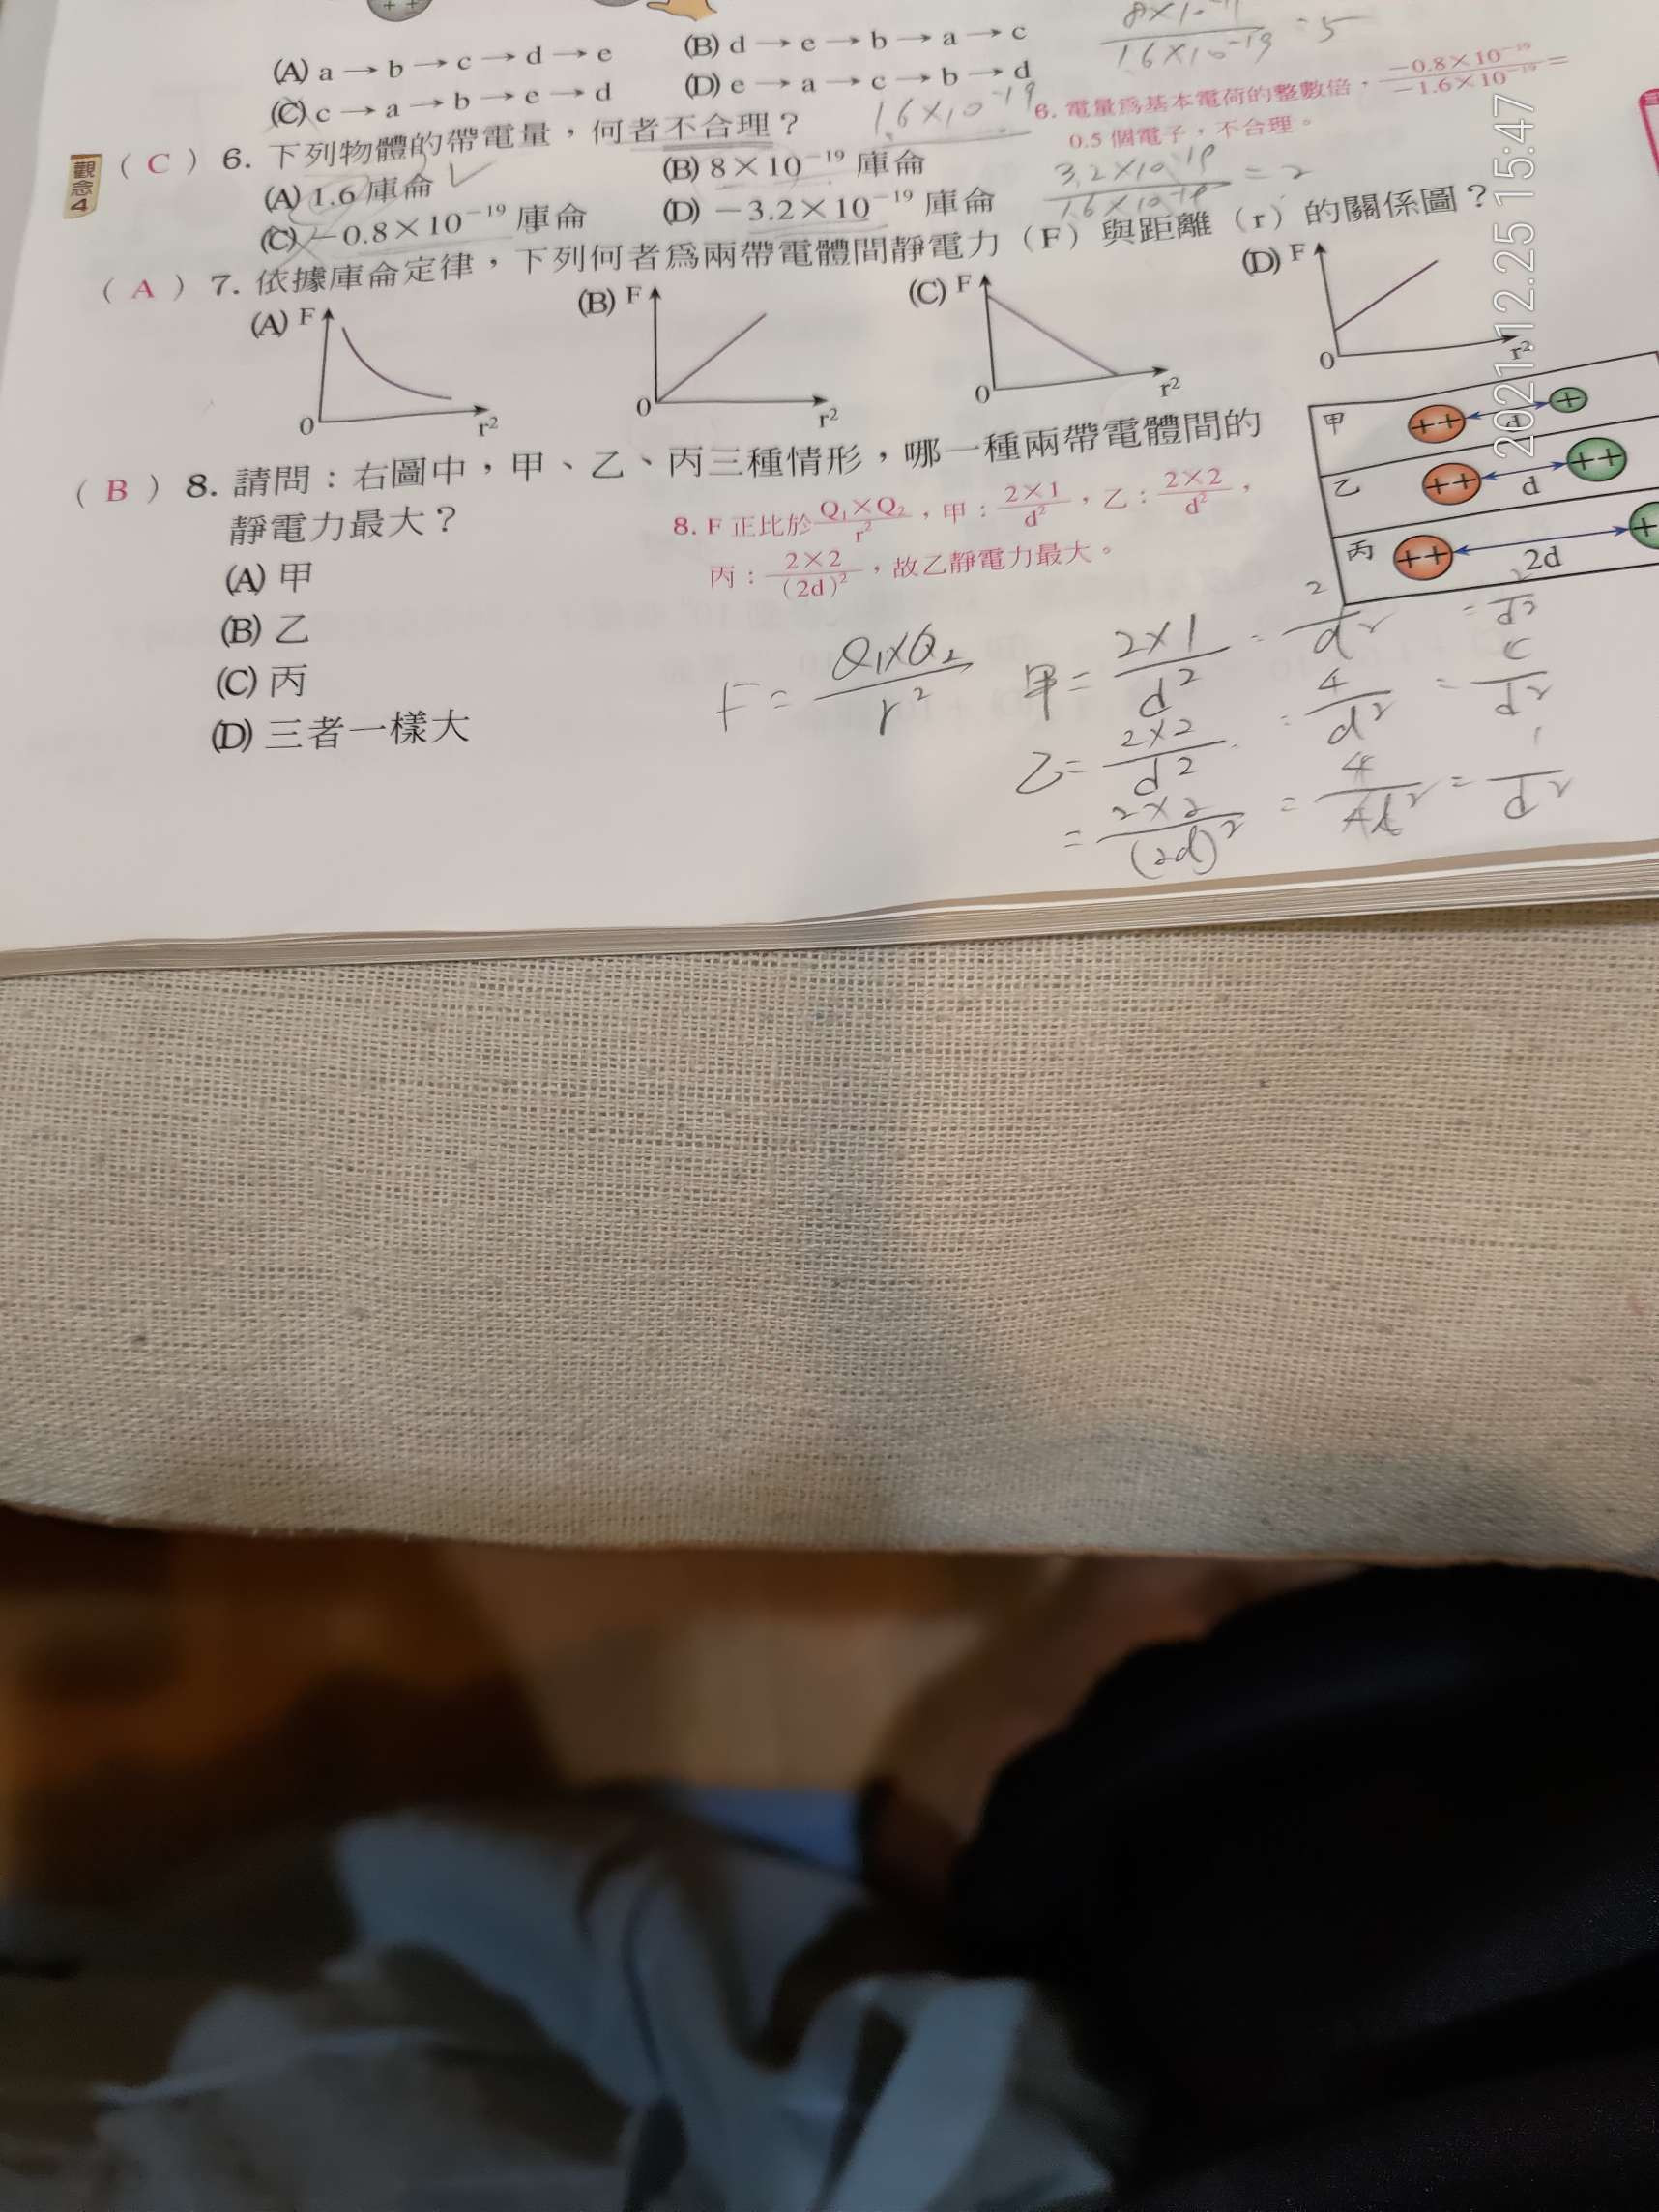 (A) a → b → c → d → e
(B) d → e → b → a → c
(C) c → a → b → e → d
(D) e → a → c → b → d
1.6×10⁻¹⁹
觀念4
( C ) 6. 下列物體的帶電量，何者不合理？
(A) 1.6 庫侖
(B) 8×10⁻¹⁹ 庫侖
(C) −0.8×10⁻¹⁹ 庫侖
(D) −3.2×10⁻¹⁹ 庫侖
6. 電量爲基本電荷的整數倍，−0.8×10⁻¹⁹/−1.6×10⁻¹⁹ =
0.5 個電子，不合理。
3.2×10⁻¹⁹/1.6×10⁻¹⁹ = 2
( A ) 7. 依據庫侖定律，下列何者爲兩帶電體間靜電力（F）與距離（r）的關係圖？
(A) F 0 r²
(B) F 0 r²
(C) F 0 r²
(D) F 0 r²
( B ) 8. 請問：右圖中，甲、乙、丙三種情形，哪一種兩帶電體間的
靜電力最大？
(A) 甲
(B) 乙
(C) 丙
(D) 三者一樣大
8. F 正比於 Q₁×Q₂/r²，甲：2×1/d²，乙：2×2/d²，
丙：2×2/(2d)²，故乙靜電力最大。
甲 ++ d +
乙 ++ d ++
丙 ++ 2d +
F = Q₁×Q₂/r²
甲 = 2×1/d² = 2/d²
乙 = 2×2/d² = 4/d²
= 2×2/(2d)² = 4/4d² = 1/d²
2021.12.25 15:47